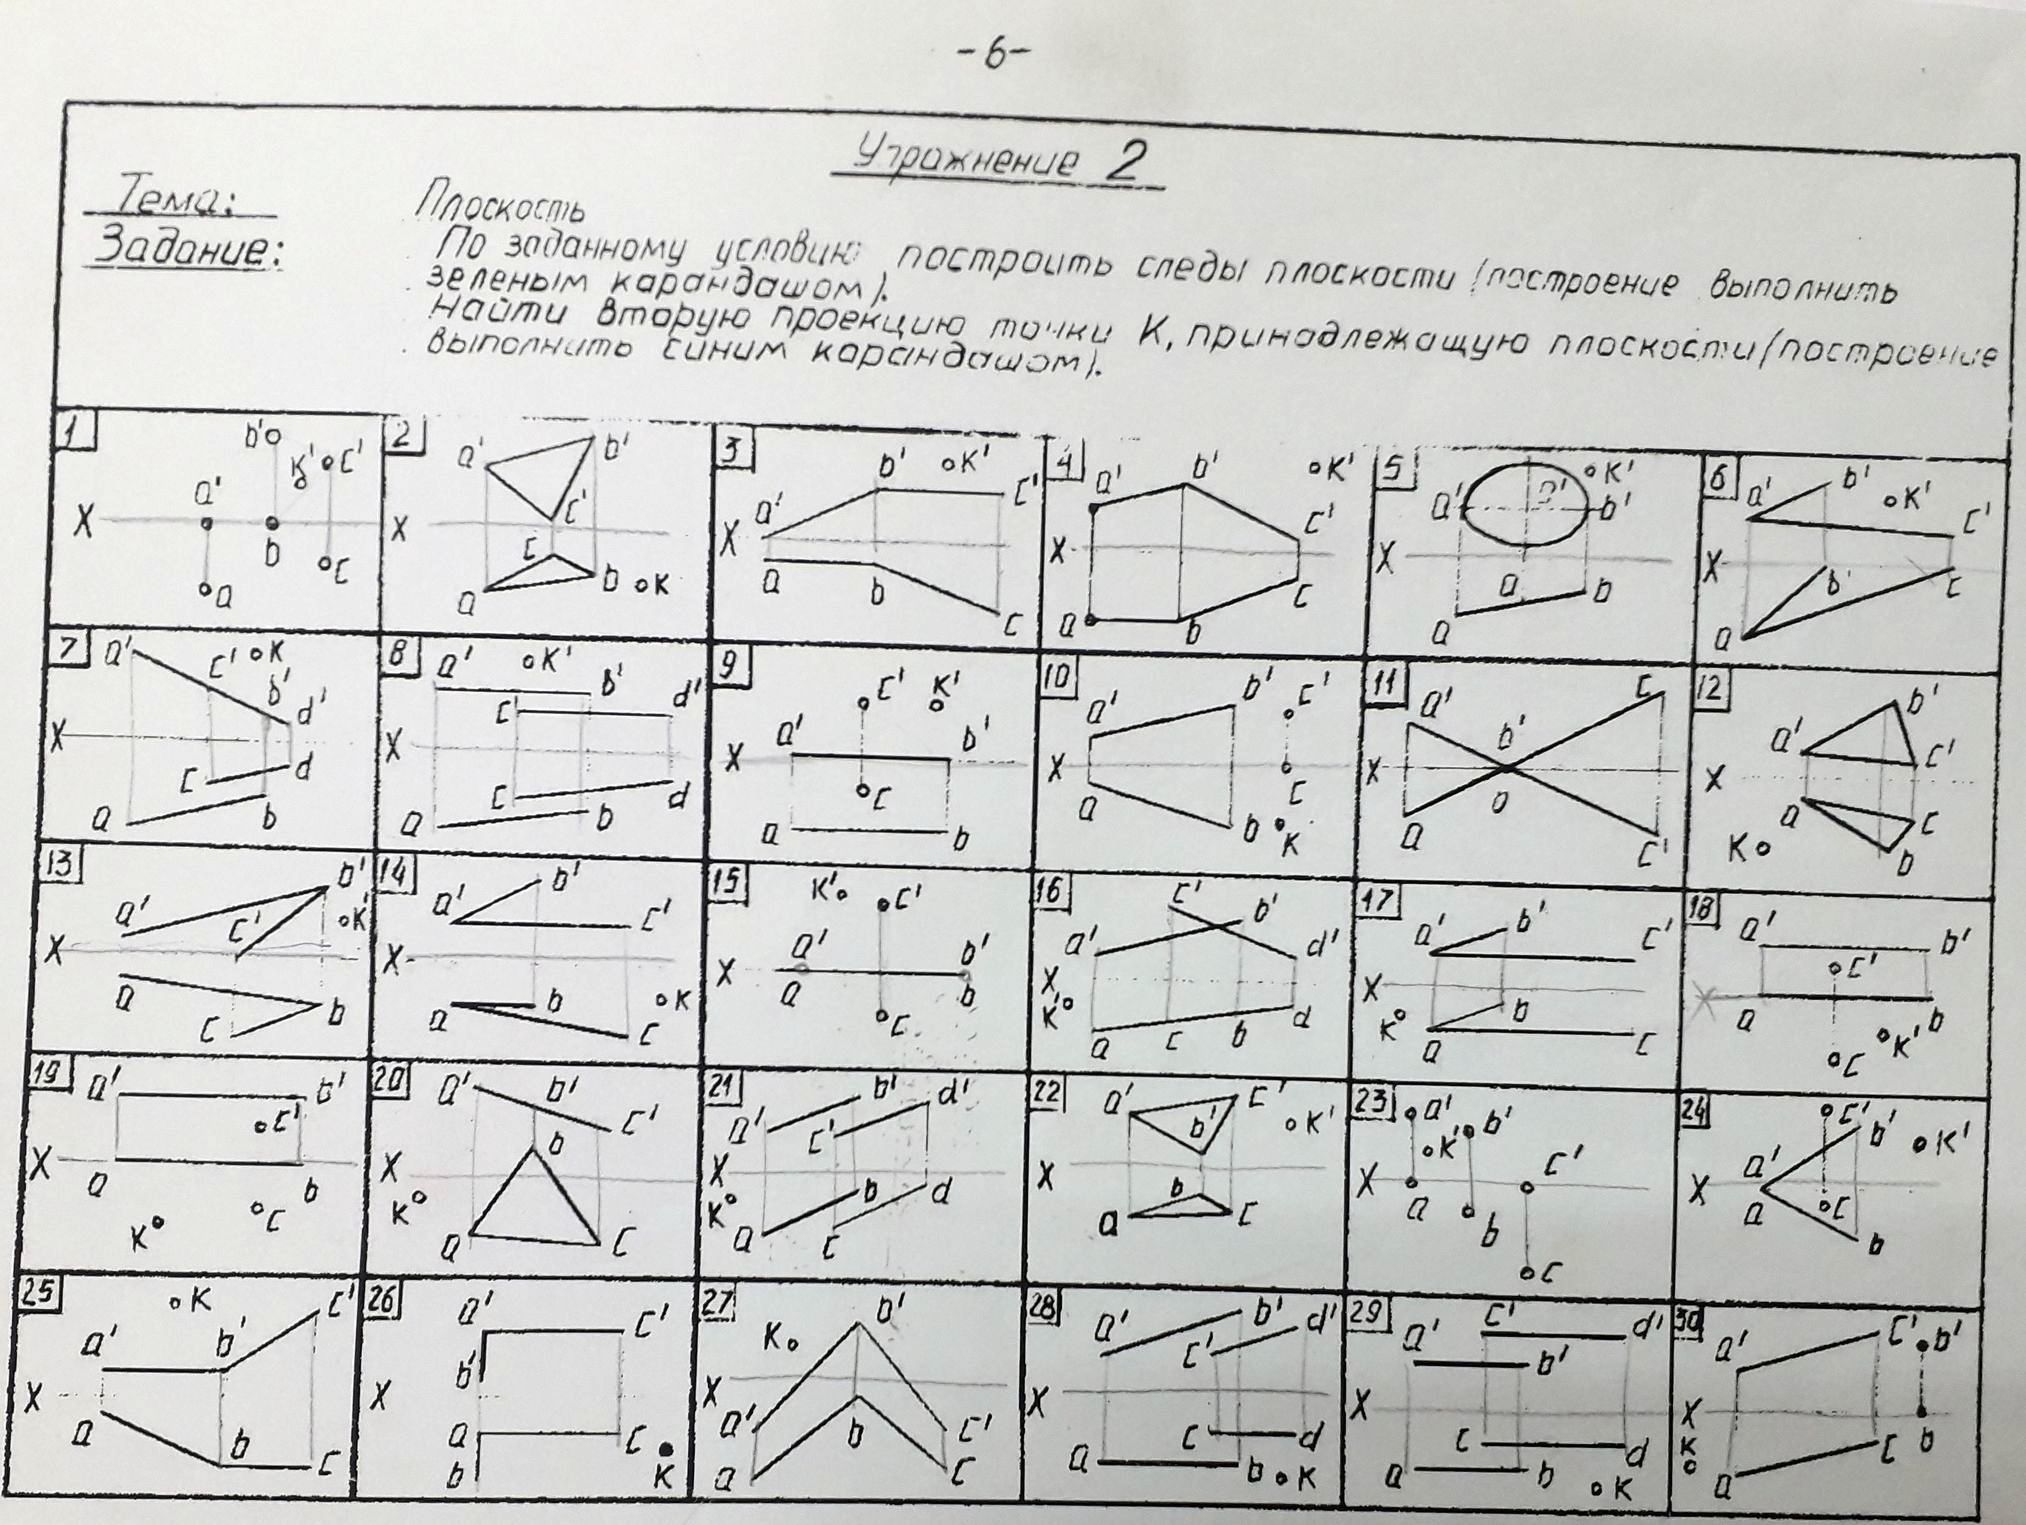 -6-
Упражнение 2
Тема: Плоскость
Задание: По заданному условию построить следы плоскости (построение выполнить
зеленым карандашом).
Найти вторую проекцию точки К, принадлежащую плоскости (построение
выполнить синим карандашом).
1 b' K' c' a' X b c a
2 a' b' c' X c b K a
3 b' K' c' a' X a b c
4 a' b' K' c' X c a b
5 K' a' b' X a b
6 a' b' K' c' X b' c a
7 a' c' K b' d' X c d a b
8 a' K' b' c' d' X c d a b
9 c' K' a' b' X c a b
10 a' b' c' X c a b K
11 a' c b' X a c'
12 b' a' c' X a c b K
13 b' a' c' K' X a b c
14 b' a' c' X a b K c
15 K' c' a' b' X a b c
16 c' b' a' d' X K a c b d
17 a' b' c' X K b a c
18 a' b' c' X a b K' c
19 a' b' c' X a b c K
20 a' b' c' X b K a c
21 a' b' d' c' X K b d a c
22 a' c' b' K' X b a c
23 a' K' b' c' X a b c
24 c' b' K' a' X a c b
25 K c' a' b' X a b c
26 a' c' b' X a c b K
27 b' K X a' c' b a c
28 b' d' a' c' X c d a b K
29 c' d' a' b' X c d a b K
30 c' b' a' X K b c a